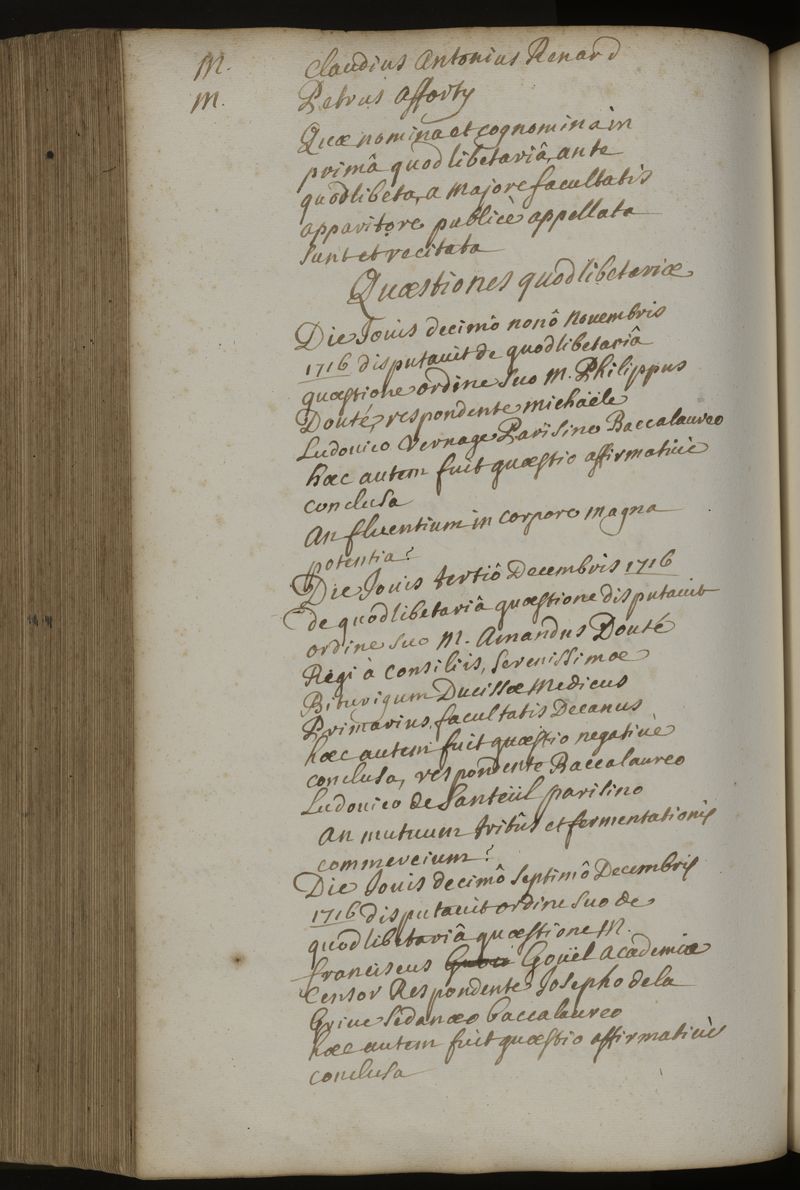 M. Claudius Antonius Renard
M. Petrus Afforty
Quæ nomina et cognomina in
primâ quodlibetariâ, ante
quodlibeta, a Majore facultatis
apparitore publicè appellata
sunt et recitata
Quæstiones quodlibetariæ
Die Jovis decimo nonô Novembris
1716 disputavit de quodlibetariâ
quæstione ordine suo M. Philippus
Douté, respondente michaële
Ludovico Vernage Parisino Baccalaureo
hæc autem fuit quæstio affirmativè
conclusa
An fluentium in corpore magna
potentia?
Die Jovis tertiô Decembris 1716
de quodlibetariâ quæstione disputavit
ordine suo M. Amandus Douté
Regi à consiliis, serenissimæ
Biturigum Ducissæ Medicus
Primarius, facultatis Decanus
hæc autem fuit quæstio negativè
conclusa, respondente Baccalaureo
Ludovico de Santeüil parisino
An mutuum tritûs et fermentationis
commercium?
Die Jovis decimô septimô Decembris
1716 disputavit ordine suo de
quodlibetariâ quæstione M.
franciscus Goüel Academiæ
Censor Respondente Josepho dela
Grive Sedanæo baccalaureo
hæc autem fuit quæstio affirmativè
conclusa